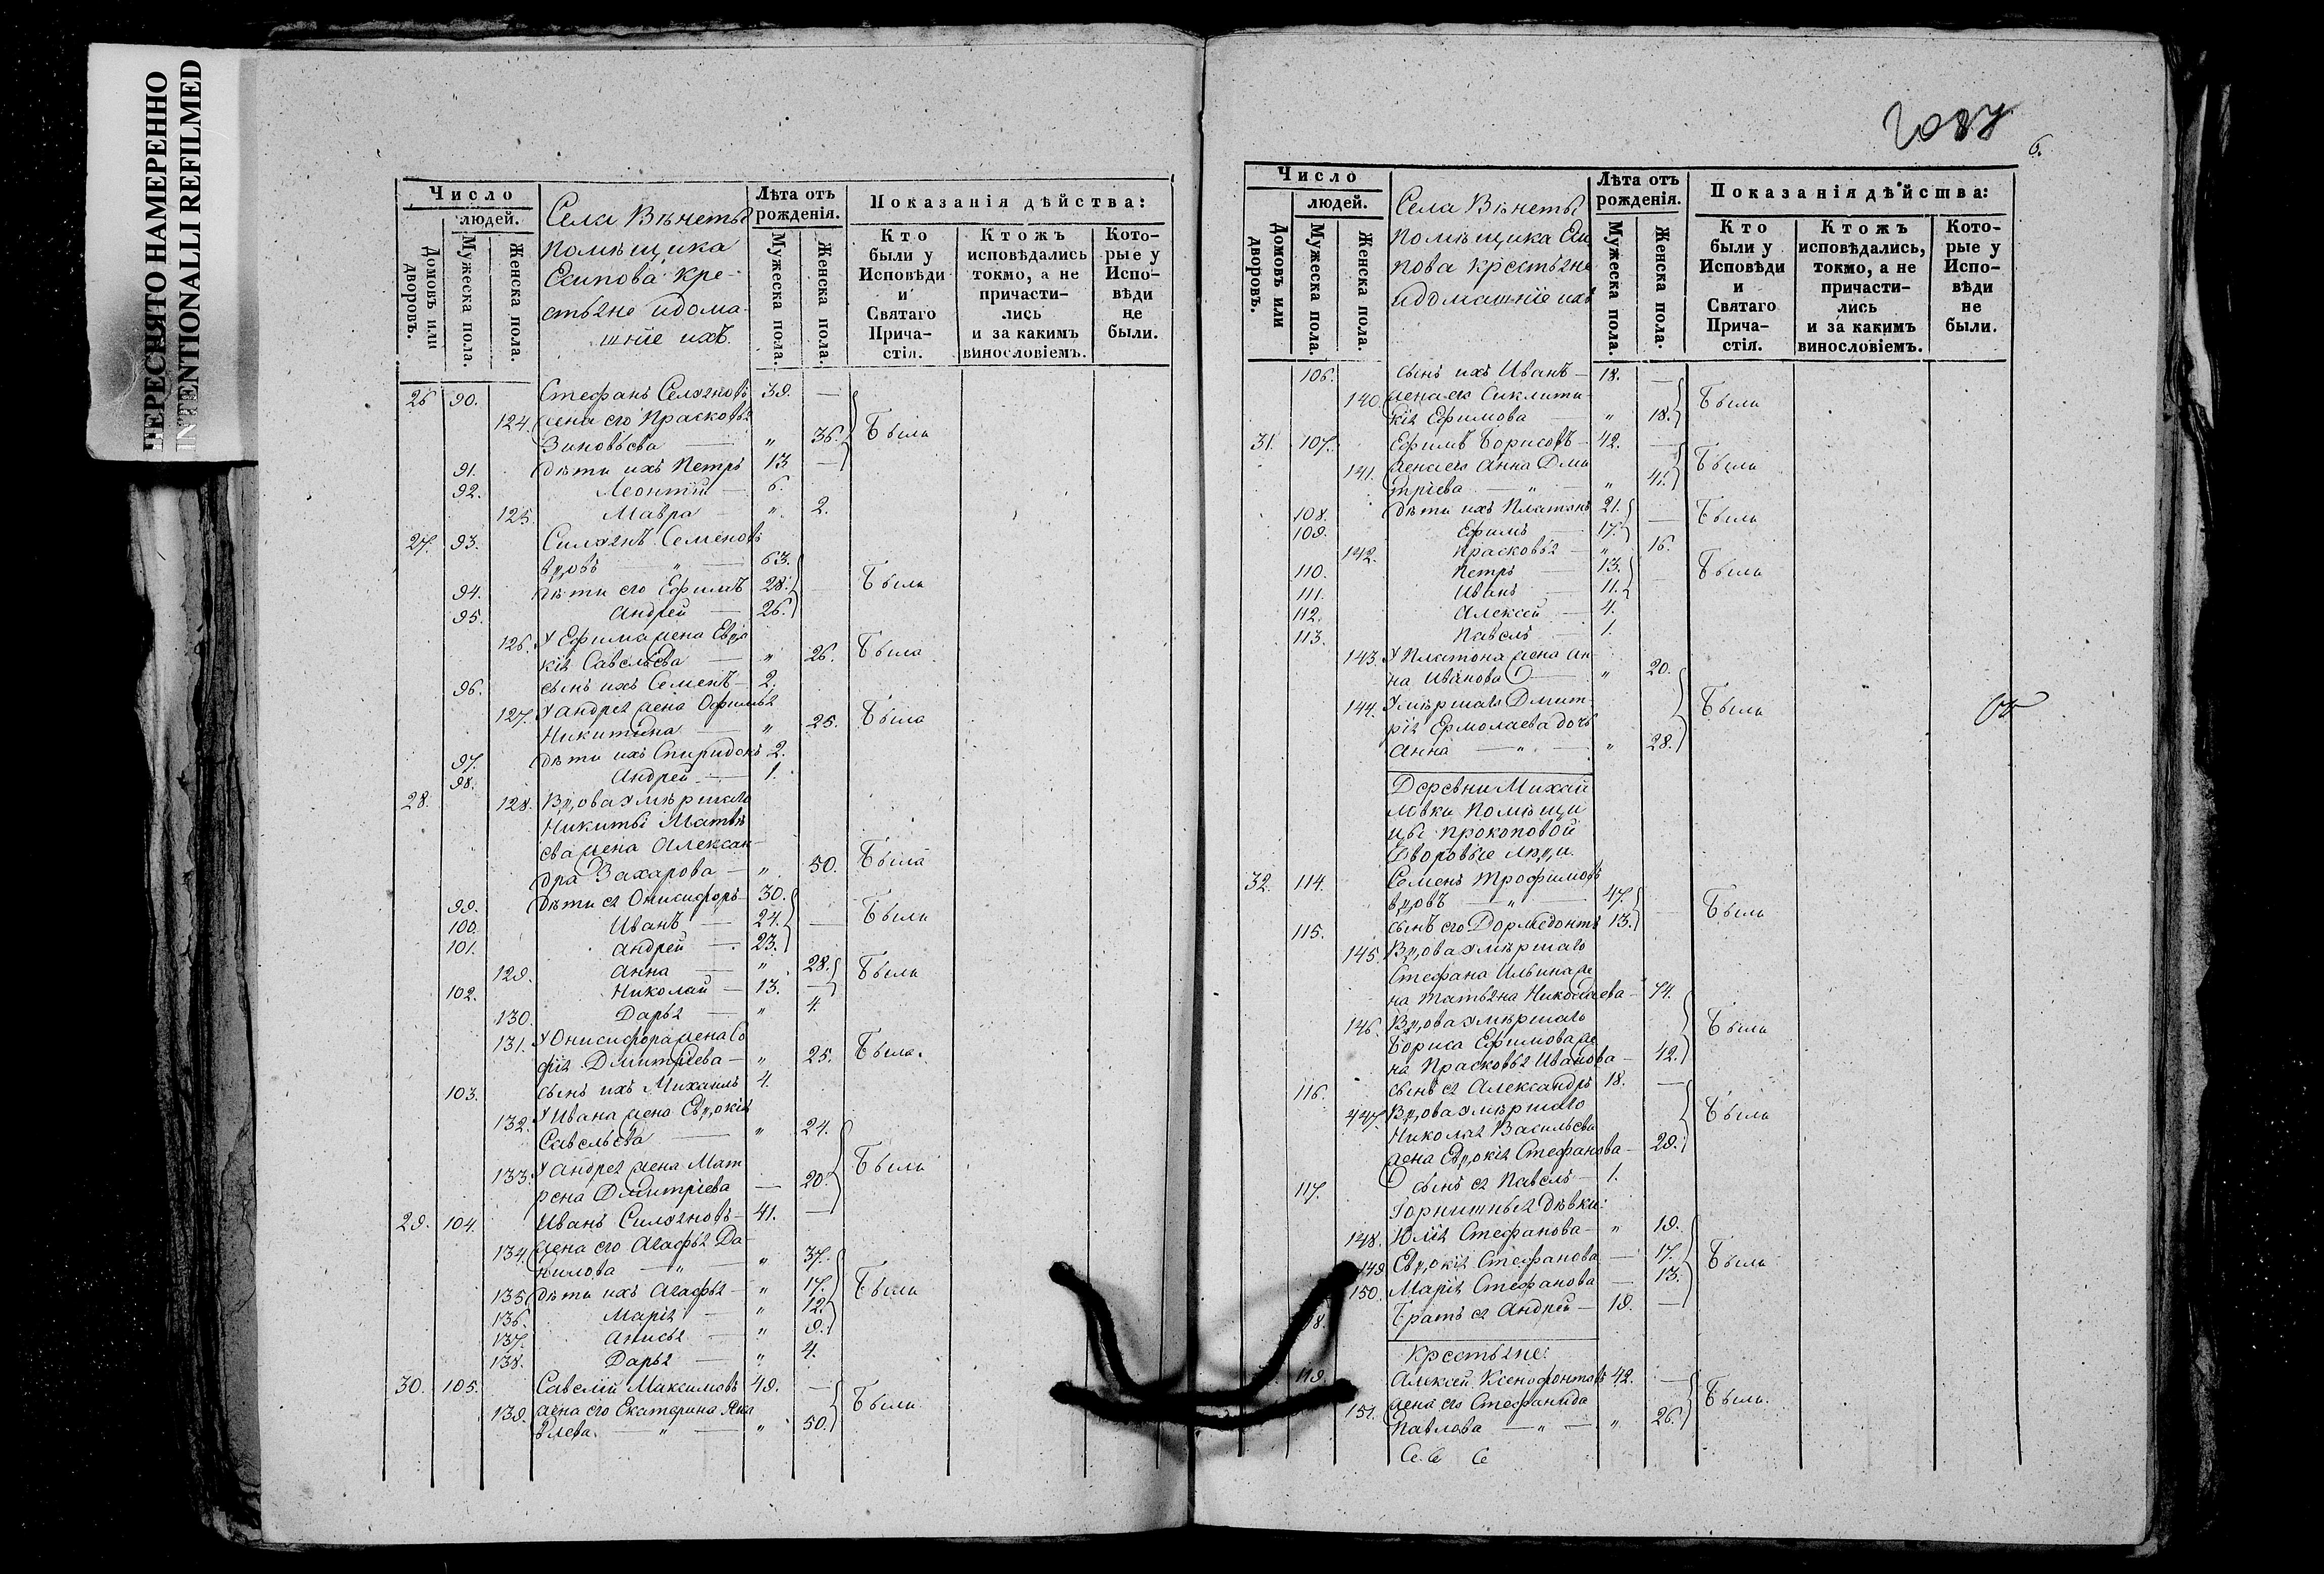 ПЕРЕСНЯТО НАМЕРЕННО
INTENTIONALLI REFILMED
Число
людей.
Домовъ или дворовъ.
Мужеска пола.
Женска пола.
Села Вѣнеты
помѣщика
Есипова кре-
стьяне и дома-
шніе ихъ.
Лѣта отъ рожденія.
Мужеска пола.
Женска пола.
Показанія дѣйства:
Кто были у Исповѣди и Святаго Причастія.
Ктожъ исповѣдались токмо, а не причастились и за какимъ винословіемъ.
Которые у Исповѣди не были.
26 90. Стефанъ Селяновъ 39. —
124. жена его Прасковья
Зиновьева — „ 36. Были
91. дѣти ихъ Петръ 13 —
92. Леонтій — 6.
125. Мавра — „ 2.
27. 93. Силуянъ Семеновъ
вдовъ — „ — 63.
94. дѣти его Ефимъ 28. Были
95. Андрей — 26.
126. У Ефима жена Евдо
кія Савельева — „ 26. Была
96. сынъ ихъ Семенъ — 2.
127. У Андрея жена Офимья
Никитина — „ 25. Была
97. дѣти ихъ Спиридонъ 2.
98. Андрей — 1.
28. 128. Вдова умѣршаго
Никиты Матвѣ
ева жена Алексан
дра Захарова — „ 50. Была
99. дѣти ея Онисифоръ — 30.
100. Иванъ — 24. — Были
101. Андрей — 23.
129. Анна — „ 28. Были
102. Николай — 13. —
130. Дарья — „ 4.
131. У Онисифора жена Со
фія Дмитріева — „ 25. Была.
103. сынъ ихъ Михаилъ 4.
132. У Ивана жена Евдокія
Савельева — „ 24.
133. У Андрея жена Мат Были
рена Дмитріева — 20.
29. 104. Иванъ Силуяновъ — 41. —
134. жена его Агафья Да-
нилова — „ — „ 37.
135. дѣти ихъ Агафья — „ 17. Были
136. Марія — „ 12.
137. Анисья — „ 9.
138. Дарья — „ 4.
30. 105. Савелій Максимовъ 49. —
139. жена его Екатерина Яко Были
влева. — „ — „ 50.
6.
Число
людей.
Домовъ или дворовъ.
Мужеска пола.
Женска пола.
Села Вѣнеты
помѣщика Еси
пова крестьяне
и домашніе ихъ
Лѣта отъ рожденія.
Мужеска пола.
Женска пола.
Показанія дѣйства:
Кто были у Исповѣди и Святаго Причастія.
Ктожъ исповѣдались, токмо, а не причастились и за какимъ винословіемъ.
Которые у Исповѣди не были.
106. сынъ ихъ Иванъ — 18. —
140. жена его Сиклити- Были
кія Ефимова „ 18.
31. 107. Ефимъ Борисовъ — 42. —
141. жена его Анна Дми Были
тріева — „ — „ 41.
108. дѣти ихъ Платонъ 21. — Были
109. Ефимъ — 17.
142. Прасковья — „ 16.
110. Петръ — 13. — Были
111. Иванъ — 11.
112. Алексей — 4.
113. Павелъ — 1.
143. У Платона жена Ан-
на Иванова — „ 20.
144. Умѣршаго Дмит- Были
рія Ермолаева дочь
Анна — „ — „ 28.
Деревни Михай
ловки помѣщи
цы Прокоповой
Дворовые люди.
32. 114. Семенъ Трофимовъ
вдовъ — „ — 47.
115. сынъ его Дормедонтъ 13. — Были
145. Вдова умѣршаго
Стефана Ильина же
на Татьяна Николаева — 74.
146. Вдова умѣршаго Были
Бориса Ефимова же
на Прасковья Иванова — 42.
116. сынъ ея Александръ 18. —
147. Вдова умѣршаго Были
Николая Васильева
жена Евдокія Стефанова — 29.
117. сынъ ея Павелъ — 1.
Горнишныя дѣвки:
148. Юлія Стефанова — „ 19.
149 Евдокія Стефанова — 17. Были
150. Марія Стефанова — 13.
8. Братъ ея Андрей — 19. —
Крестьяне:
119. Алексей Ксенофонтовъ 42. —
151. жена его Стефанида Были.
Павлова — „ — „ 26.